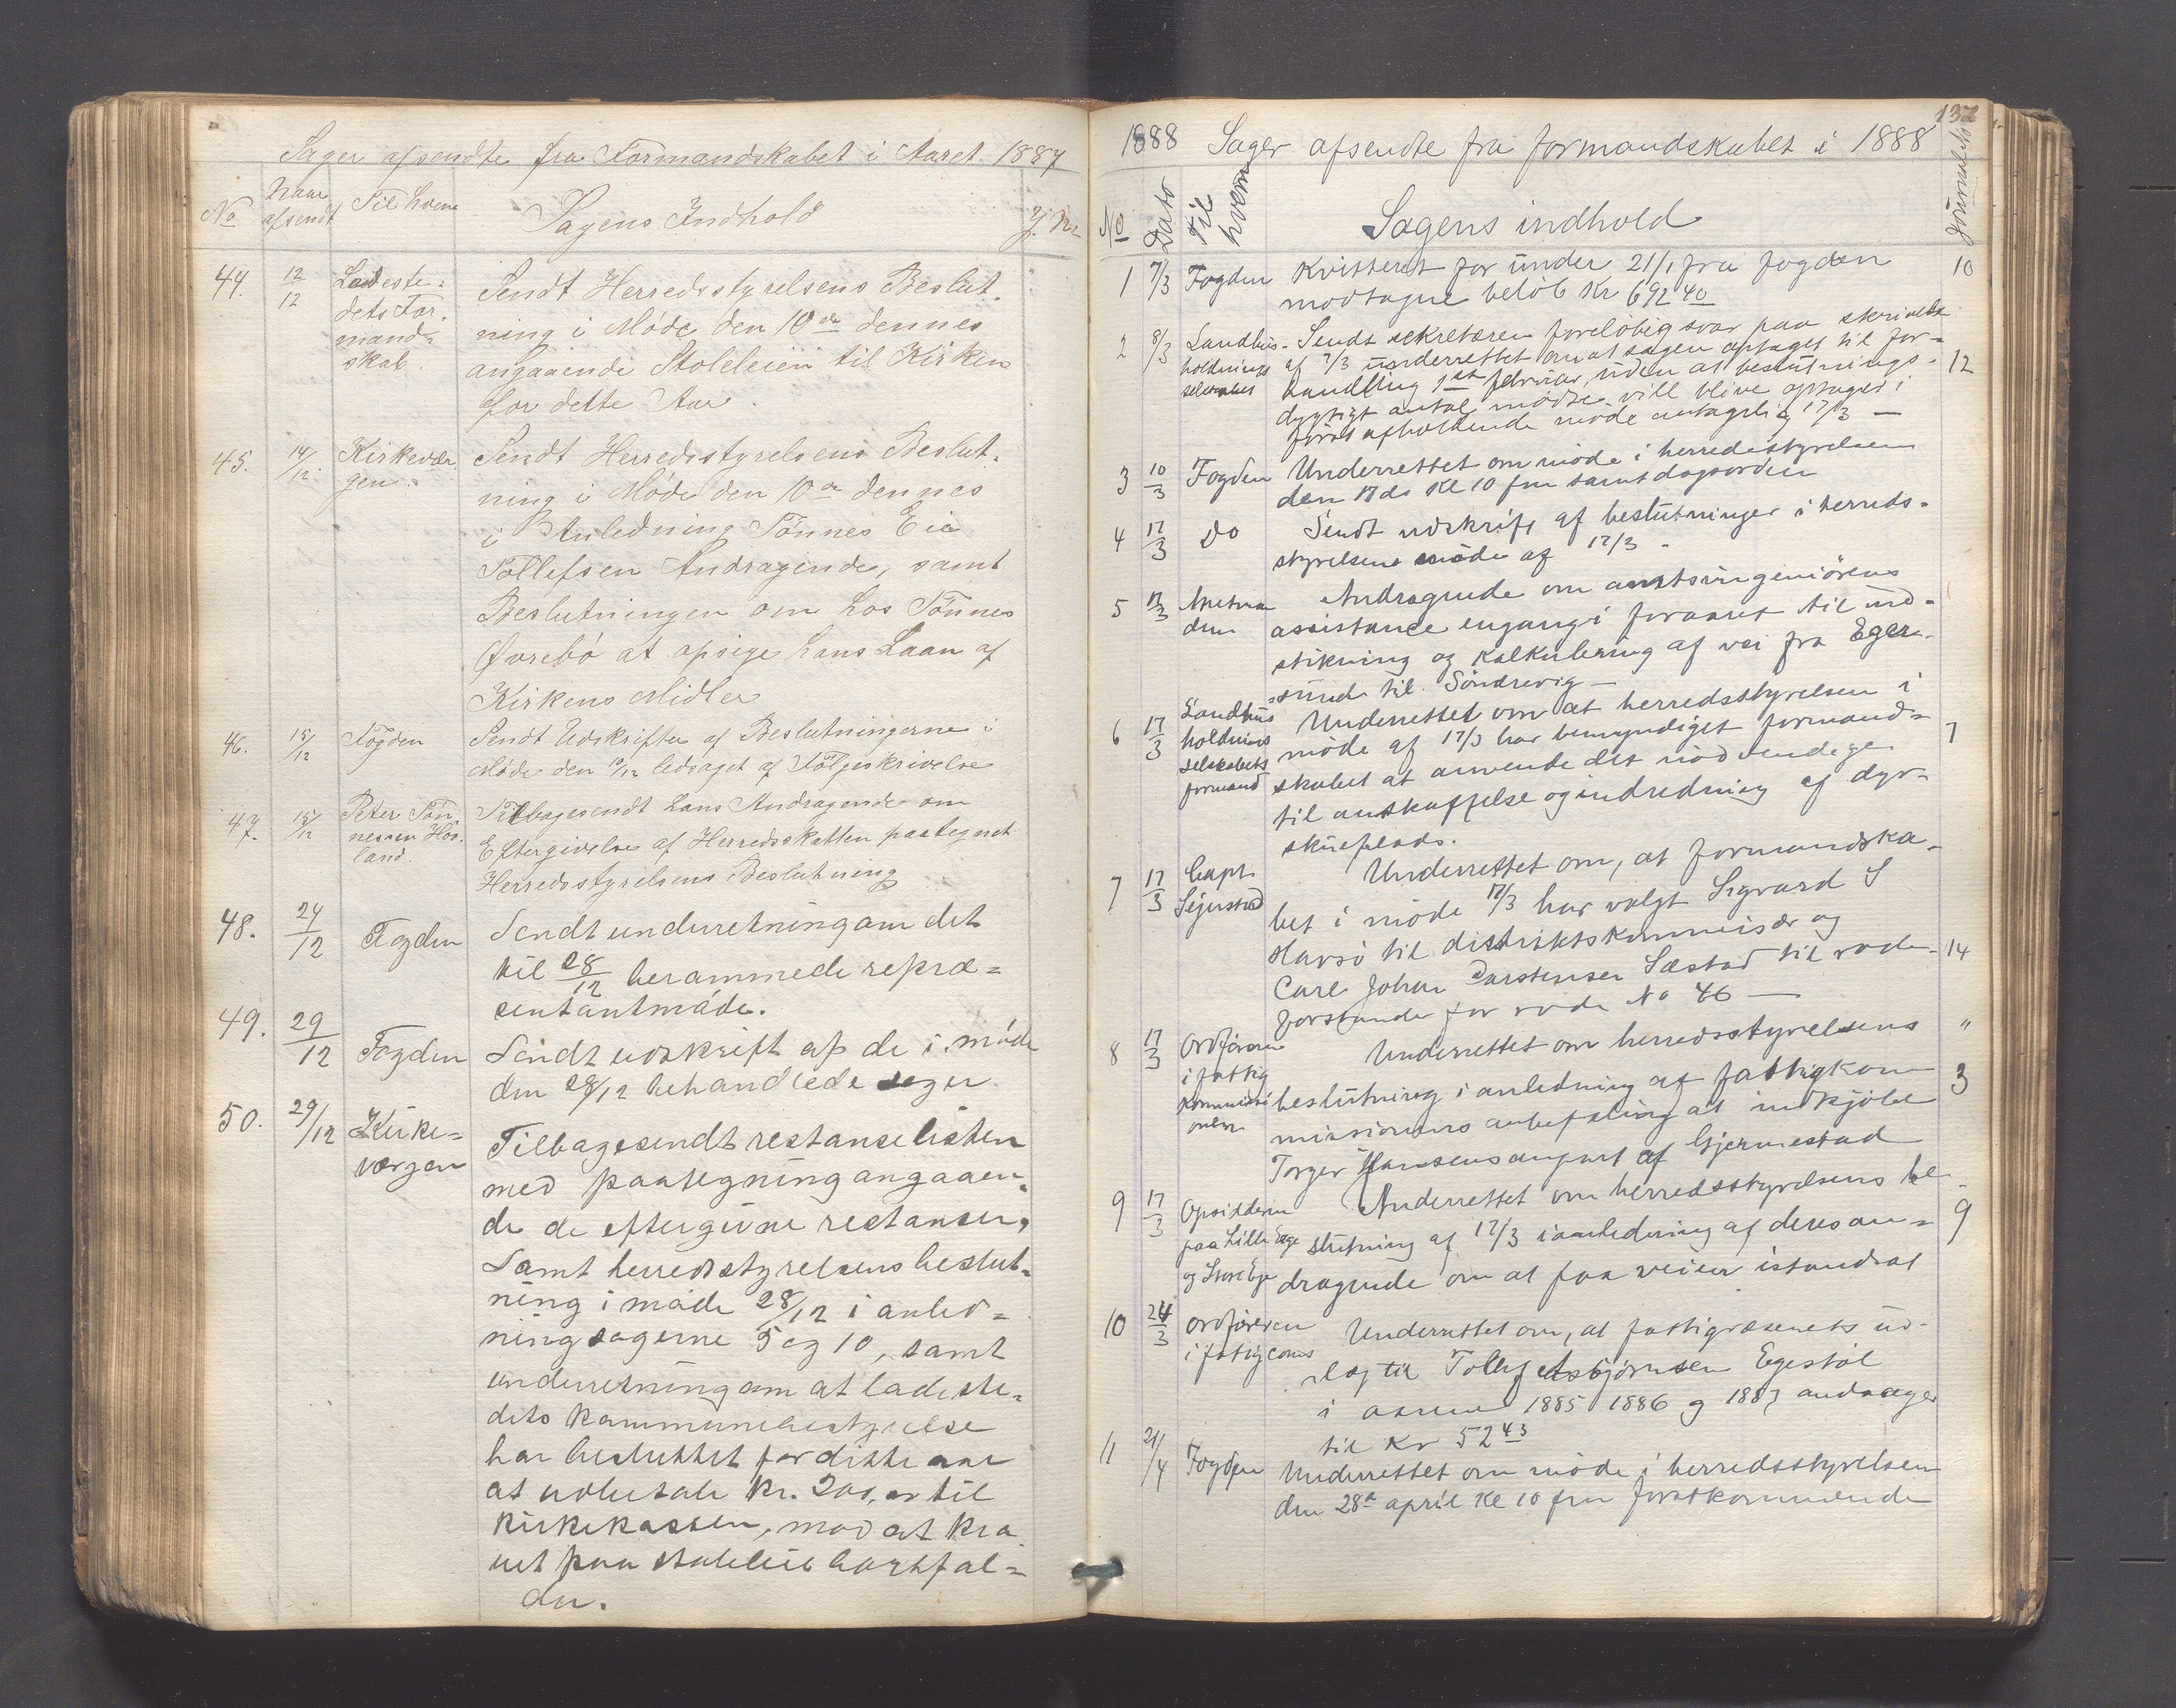 Sager afsendte fra Formandskabet i Aaret 1887
No
Naar afsendt
Til hvem
Sagens Indhold
J. No
44. 12/12 Ladeste-
dets For-
mand-
skab.
Sendt Herredsstyrelsens Beslut-
ning i Møde den 10de dennes
angaaende Stoleleien til Kirken
for dette Aar.
45. 14/12. Kirkevær-
gen.
Sendt Herredsstyrelsens Beslut-
ning i Møde den 10de dennes
i Anledning Tønnes Eie
Tollefsen Andragende, samt
Beslutningen om hos Tønnes
Øvrebø at opsige hans Laan af
Kirkens Midler
46. 15/12 Fogden
Sendt Udskrifter af Beslutningerne i
Møde den 10/12 ledsaget af Følgeskrivelse
47. 15/12 Peter Tøn-
nessen Hoo-
land.
Tilbagesendt hans Andragende om
Eftergivelse af Herredsskatten paategnet
Herredsstyrelsens Beslutning
48. 24/12 Fogden
Sendt underretning om det
til 28/12 berammede repræ=
sentantmøde.
49. 29/12 Fogden
Sendt udskrift af de i møde
den 28/12 behandlede sager.
50. 29/12 Kirke=
værgen
Tilbagesendt restanselisten
med paategning angaaen=
de de eftergivne restanser,
Samt herredsstyrelsens beslut=
ning i møde 28/12 i anled=
ning sagerne 5 og 10, samt
underretning om at ladeste=
dets kommunebestyrelse
har besluttet for dette aar
at udbetale Kr. 200,00 til
kirkekassen, mod at kra
vet paa stoleleie bortfal=
der.
132
1888 Sager afsendte fra formandskabet i 1888
No
Dato
Til hvem
Sagens indhold
Journal No
1 7/3 Fogden Kvitteret for under 21/1 fra fogden 10
modtagne beløb Kr 692 40
2 8/3 Landhus-
holdnings
selskabet
Sendt sekretæren foreløbig svar paa skrivelse
af 7/3 underrettet om at sagen optaget til for-
handling 1st februar, uden at beslutnings- 12
dygtigt antal mødte vill blive optaget i
først afholdende møde antagelig 17/3 —
3 10/3 Fogden Underrettet om møde i herredsstyrelsen
den 17 ds Kl 10 fm samt dagsorden
4 17/3 Do Sendt udskrift af beslutninger i herreds-
styrelsens møde af 17/3 -
5 17/3 Amtman
den
Andragende om amtsingeniørens
assistance engang i foraaret til ud-
stikning og kalkulering af vei fra Eger-
sund til Søndrevig —
6 17/3 Landhus
holdnings
selskabets
formand
Underrettet om at herredsstyrelsen i
møde af 17/3 har bemyndiget formand= 7
skabet at anvende det nødvendige
til anskaffelse og indredning af dyr-
skueplads.
7 17/3 Capt.
Sejersted
Underrettet om, at formandska-
bet i møde 17/3 har valgt Sigvard S
Havsø til distriktskommisær og
Carl Johan Carstensen Sæstad til rode- 14
forstander for rode No 46 —
8 17/3 Ordføreren
i fattig
kommissi
onen
Underrettet om herredsstyrelsens "
beslutning i anledning af fattigkom 3
missionens anbefaling at indkjøbe
Torger Hansens anpart af Gjermestad
9 17/3 Opsidderne
paa Lille Ege
og Store Ege
Underrettet om herredsstyrelsens be-
slutning af 17/3 i anledning af deres an= 9
dragende om at faa veien istandsat
10 24/3 Ordføreren
i fatigcoms
Underrettet om, at fattigvæsenets ud-
læg til Tollef Asbjørnsen Egestøl
i aarene 1885 1886 og 1887 andrager
til Kr 52 43
11 21/4 Fogden Underrettet om møde i herredsstyrelsen
den 28de april Kl 10 fm førstkommende